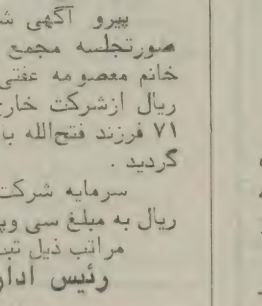 پیرو آگهی ش
صورتجلسه مجمع
خانم معصومه عفتی
ریال ازشرکت خارج
۷۱ فرزند فتح‌الله با
گردید .
سرمایه شرکت
ریال به مبلغ سی وپ
مراتب ذیل ثب
رئیس ادار